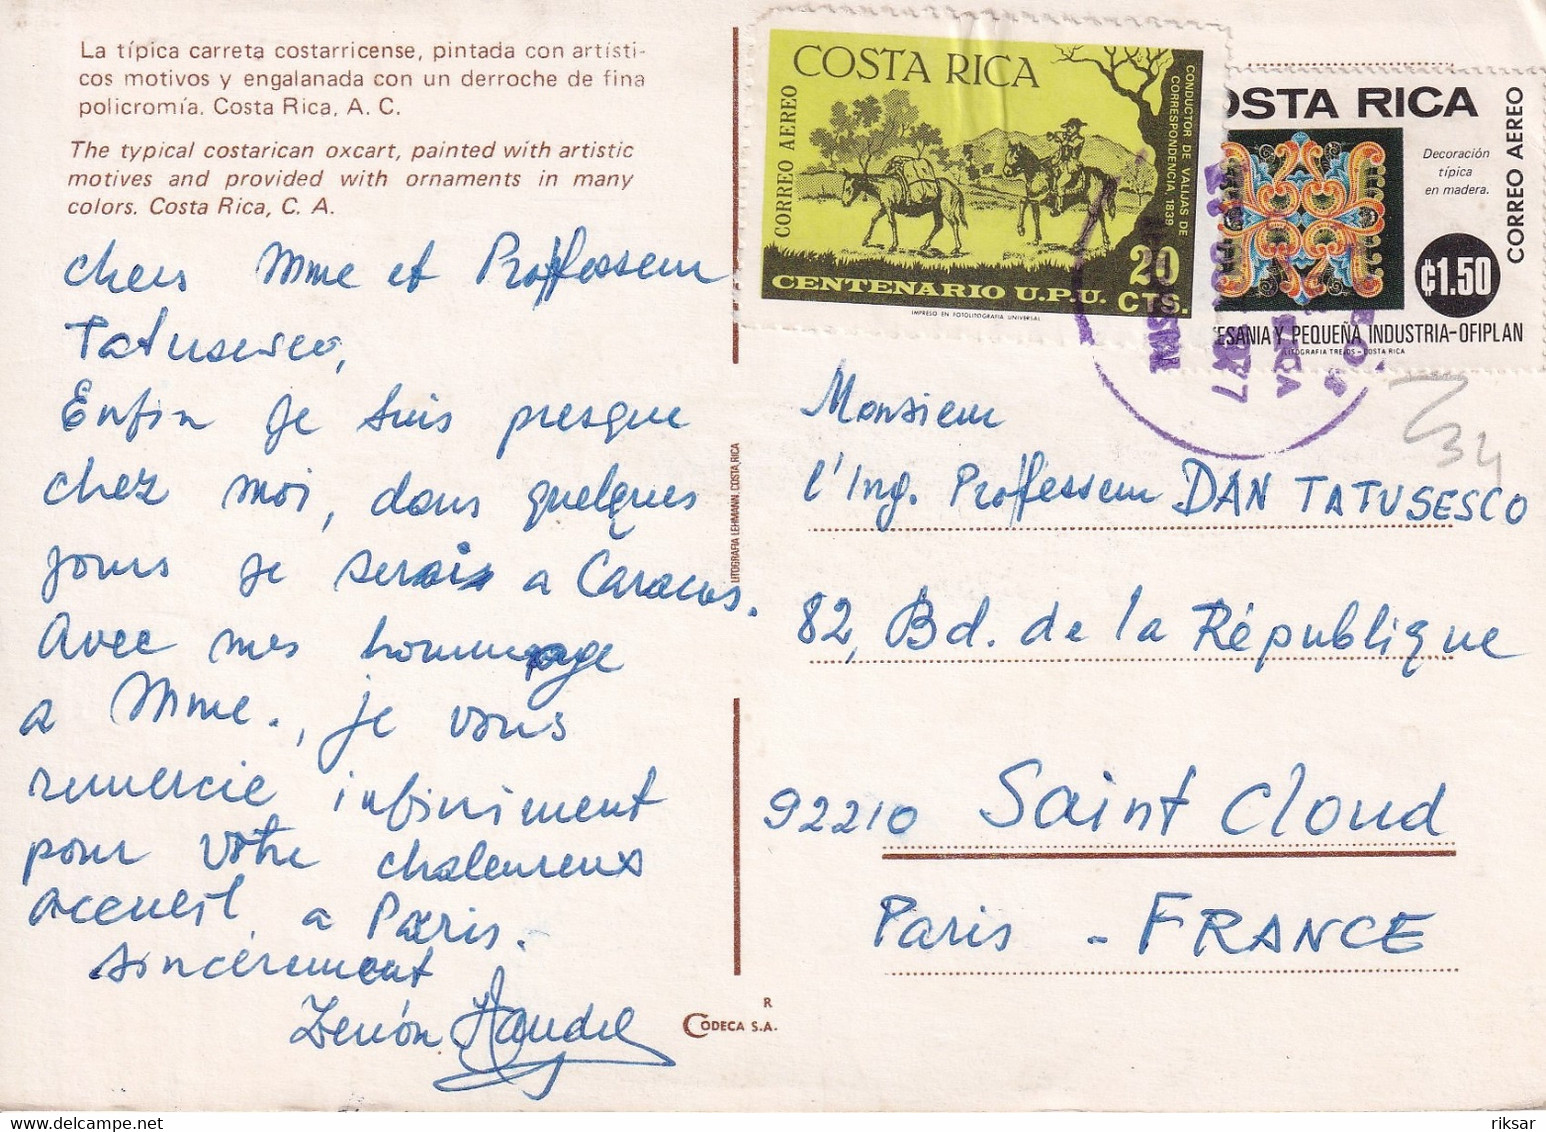 La típica carreta costarricense, pintada con artísti-
cos motivos y engalanada con un derroche de fina
policromía. Costa Rica, A. C.
The typical costarican oxcart, painted with artistic
motives and provided with ornaments in many
colors. Costa Rica, C. A.
chers Mme et Proffesseur
Tatusesco,
Enfin je suis presque
chez moi, dans quelques
jours je serais a Caracas.
Avec mes hommage
a Mme., je vous
remercie infiniment
pour votre chaleureux
accueil a Paris.
sincèrement
Zenón
LITOGRAFIA LEHMANN, COSTA RICA
R
CODECA S.A.
COSTA RICA
CORREO AEREO
CONDUCTOR DE VALIJAS DE
CORRESPONDENCIA, 1839
20
CTS.
CENTENARIO U.P.U.
IMPRESO EN FOTOLITOGRAFIA UNIVERSAL
OSTA RICA
Decoración
típica
en madera.
CORREO AEREO
₡1.50
ESANIA Y PEQUEÑA INDUSTRIA-OFIPLAN
LITOGRAFIA TREJOS - COSTA RICA
34
Monsieur
l'Ing. Proffesseur DAN TATUSESCO
82, Bd. de la République
92210 Saint Cloud
Paris - FRANCE
riksar